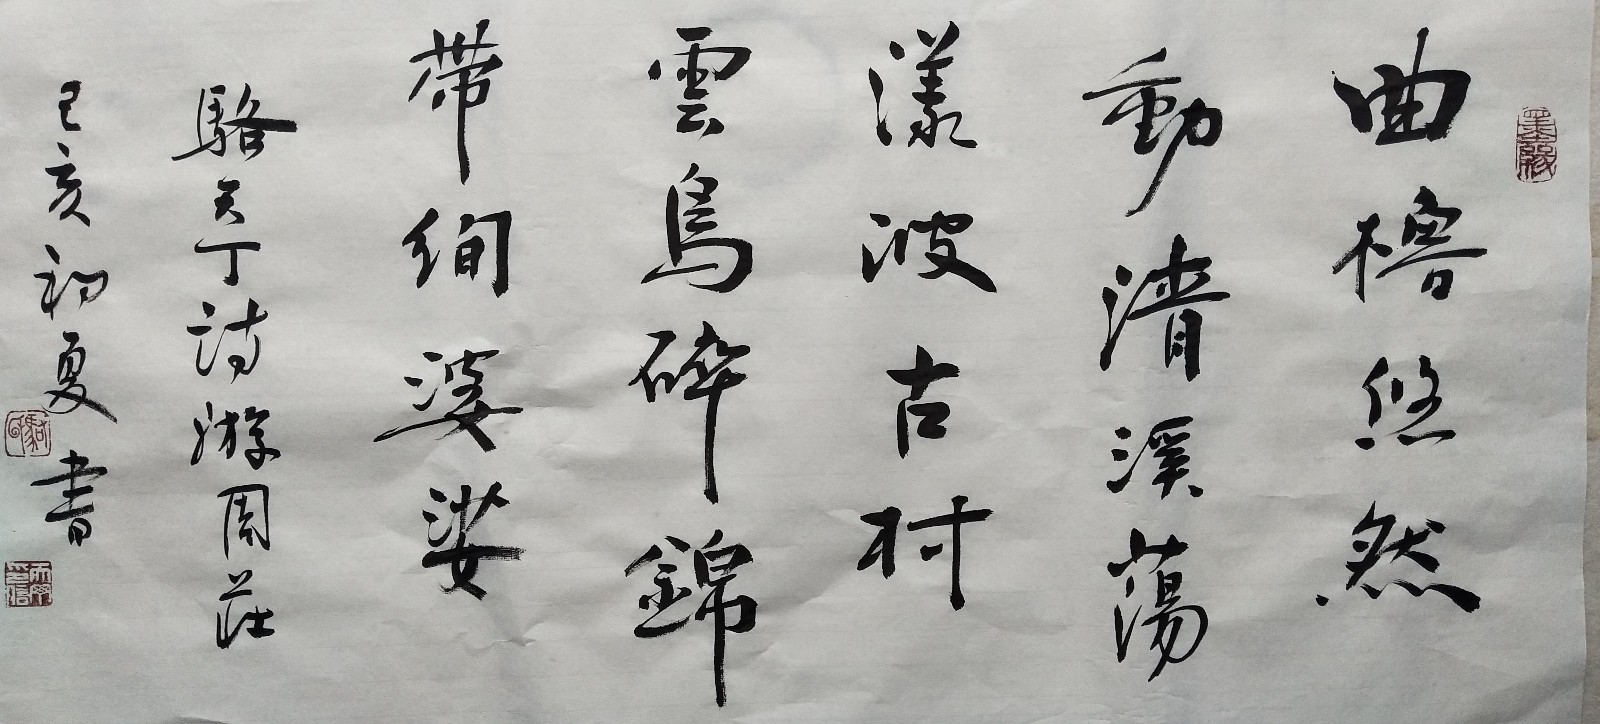 墨緣
曲櫓悠然
動清溪蕩
漾波古村
雲鳥碎錦
帶絢婆娑
駱天丁詩游周莊
己亥初夏書